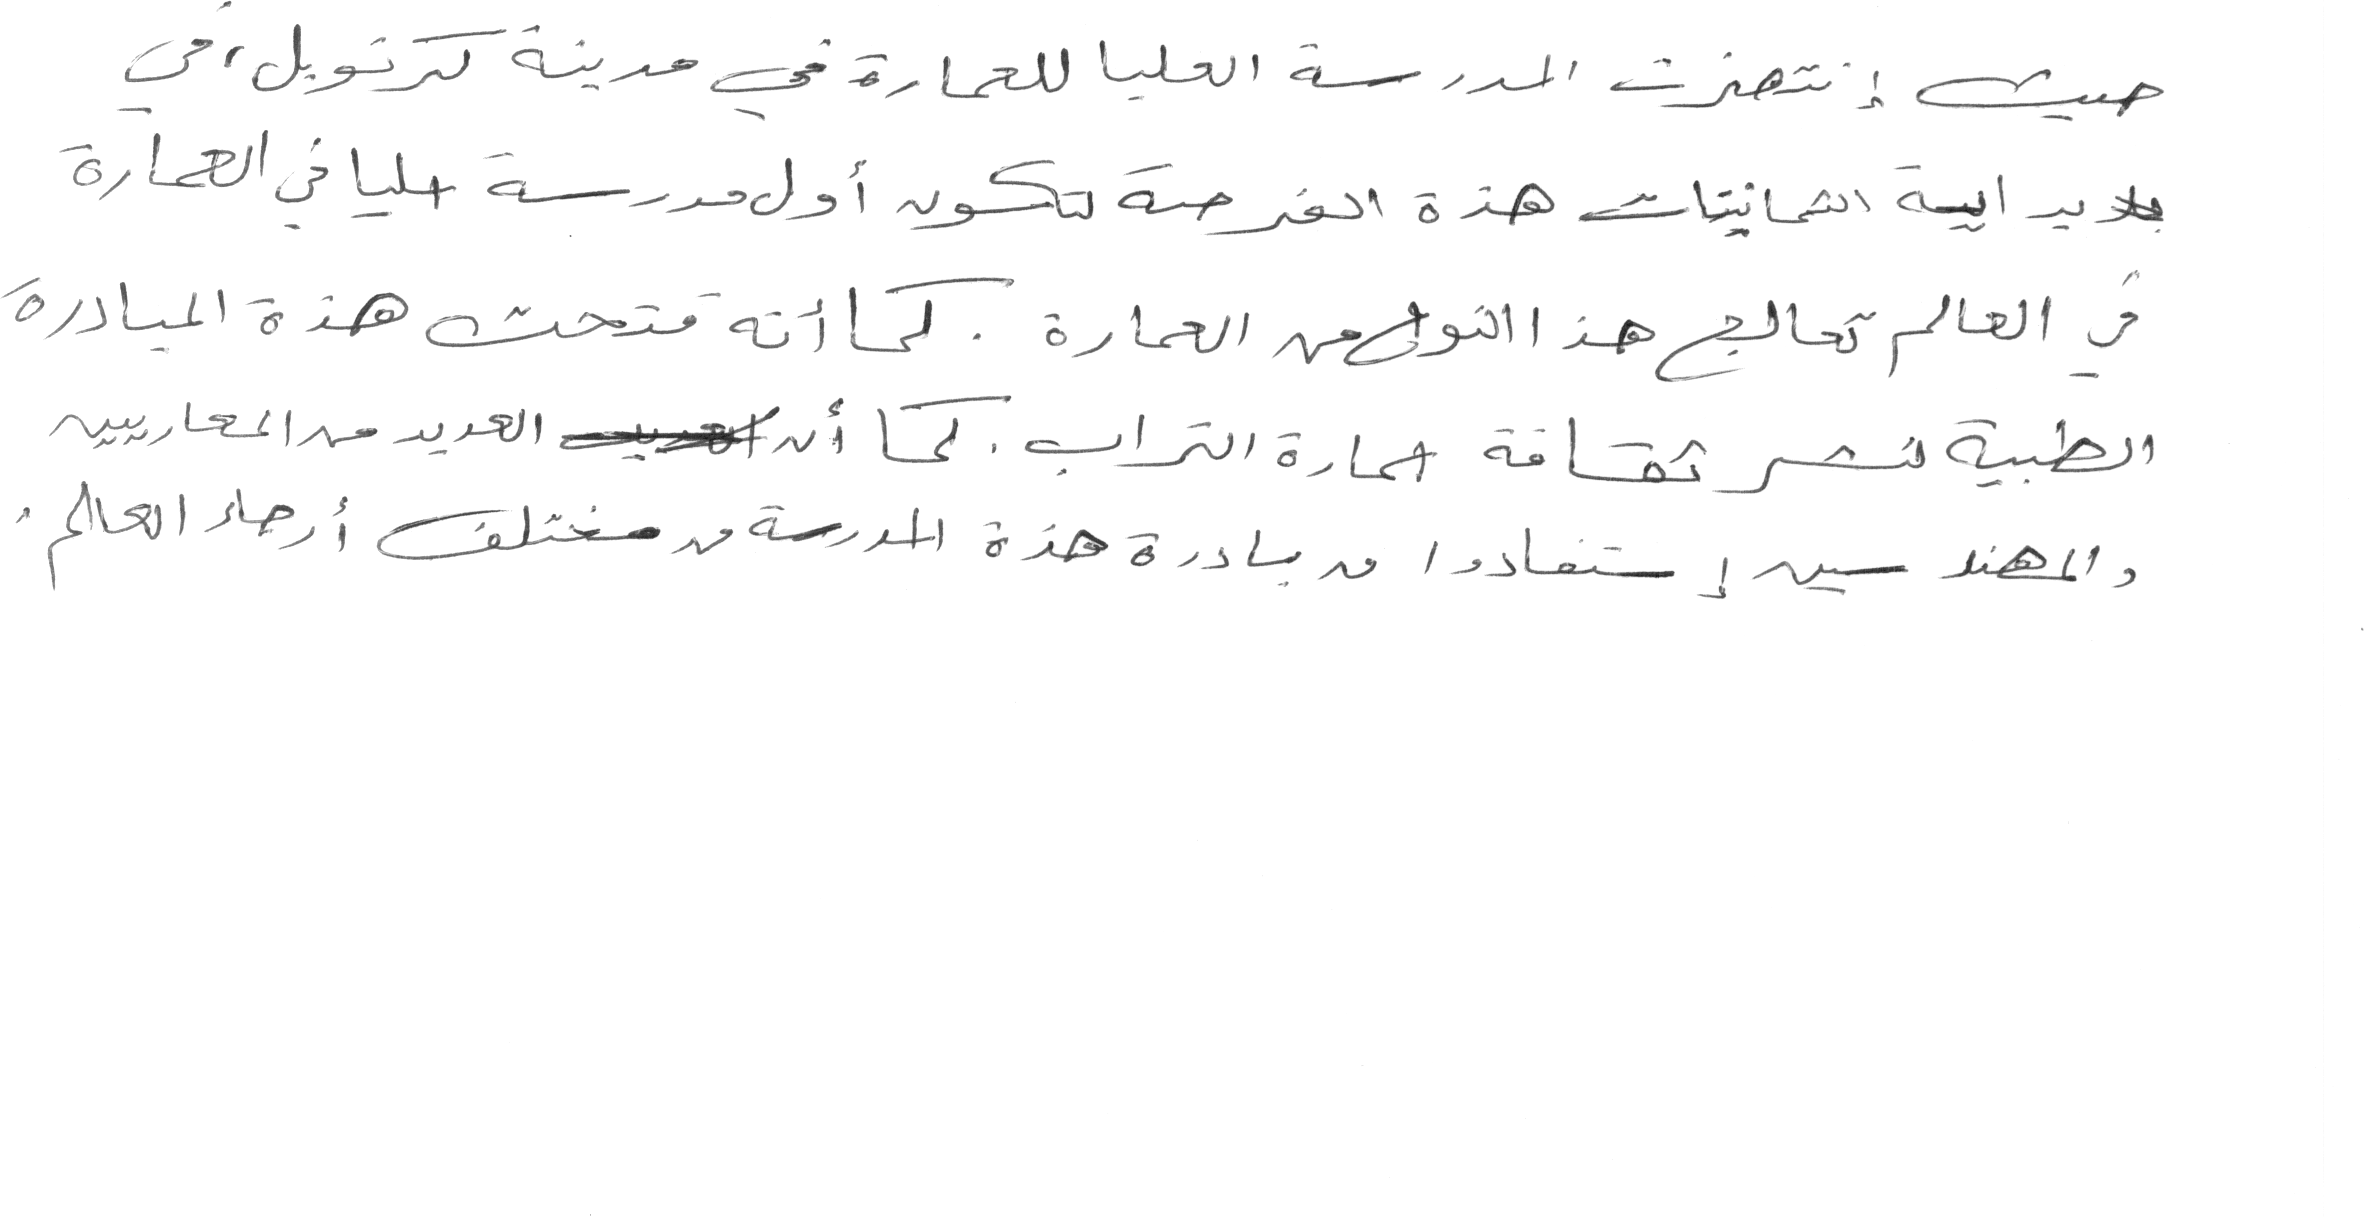 حيث إنتهزت المدرسة العليا للعمارة في مدينة كرنوبل، في
بداية الثمانينات هذة الفرصة لتكون أول مدرسة عليا في العمارة
في العالم تعالج هذا النوع من العمارة . كما أنه فتحت هذة المبادرة
الطيبة لنشر ثقافة عمارة التراب . كما أن العديد من المعاريين
والمهندسين إستفادوا من بادرة هذة المدرسة من مختلف أرجاء العالم .